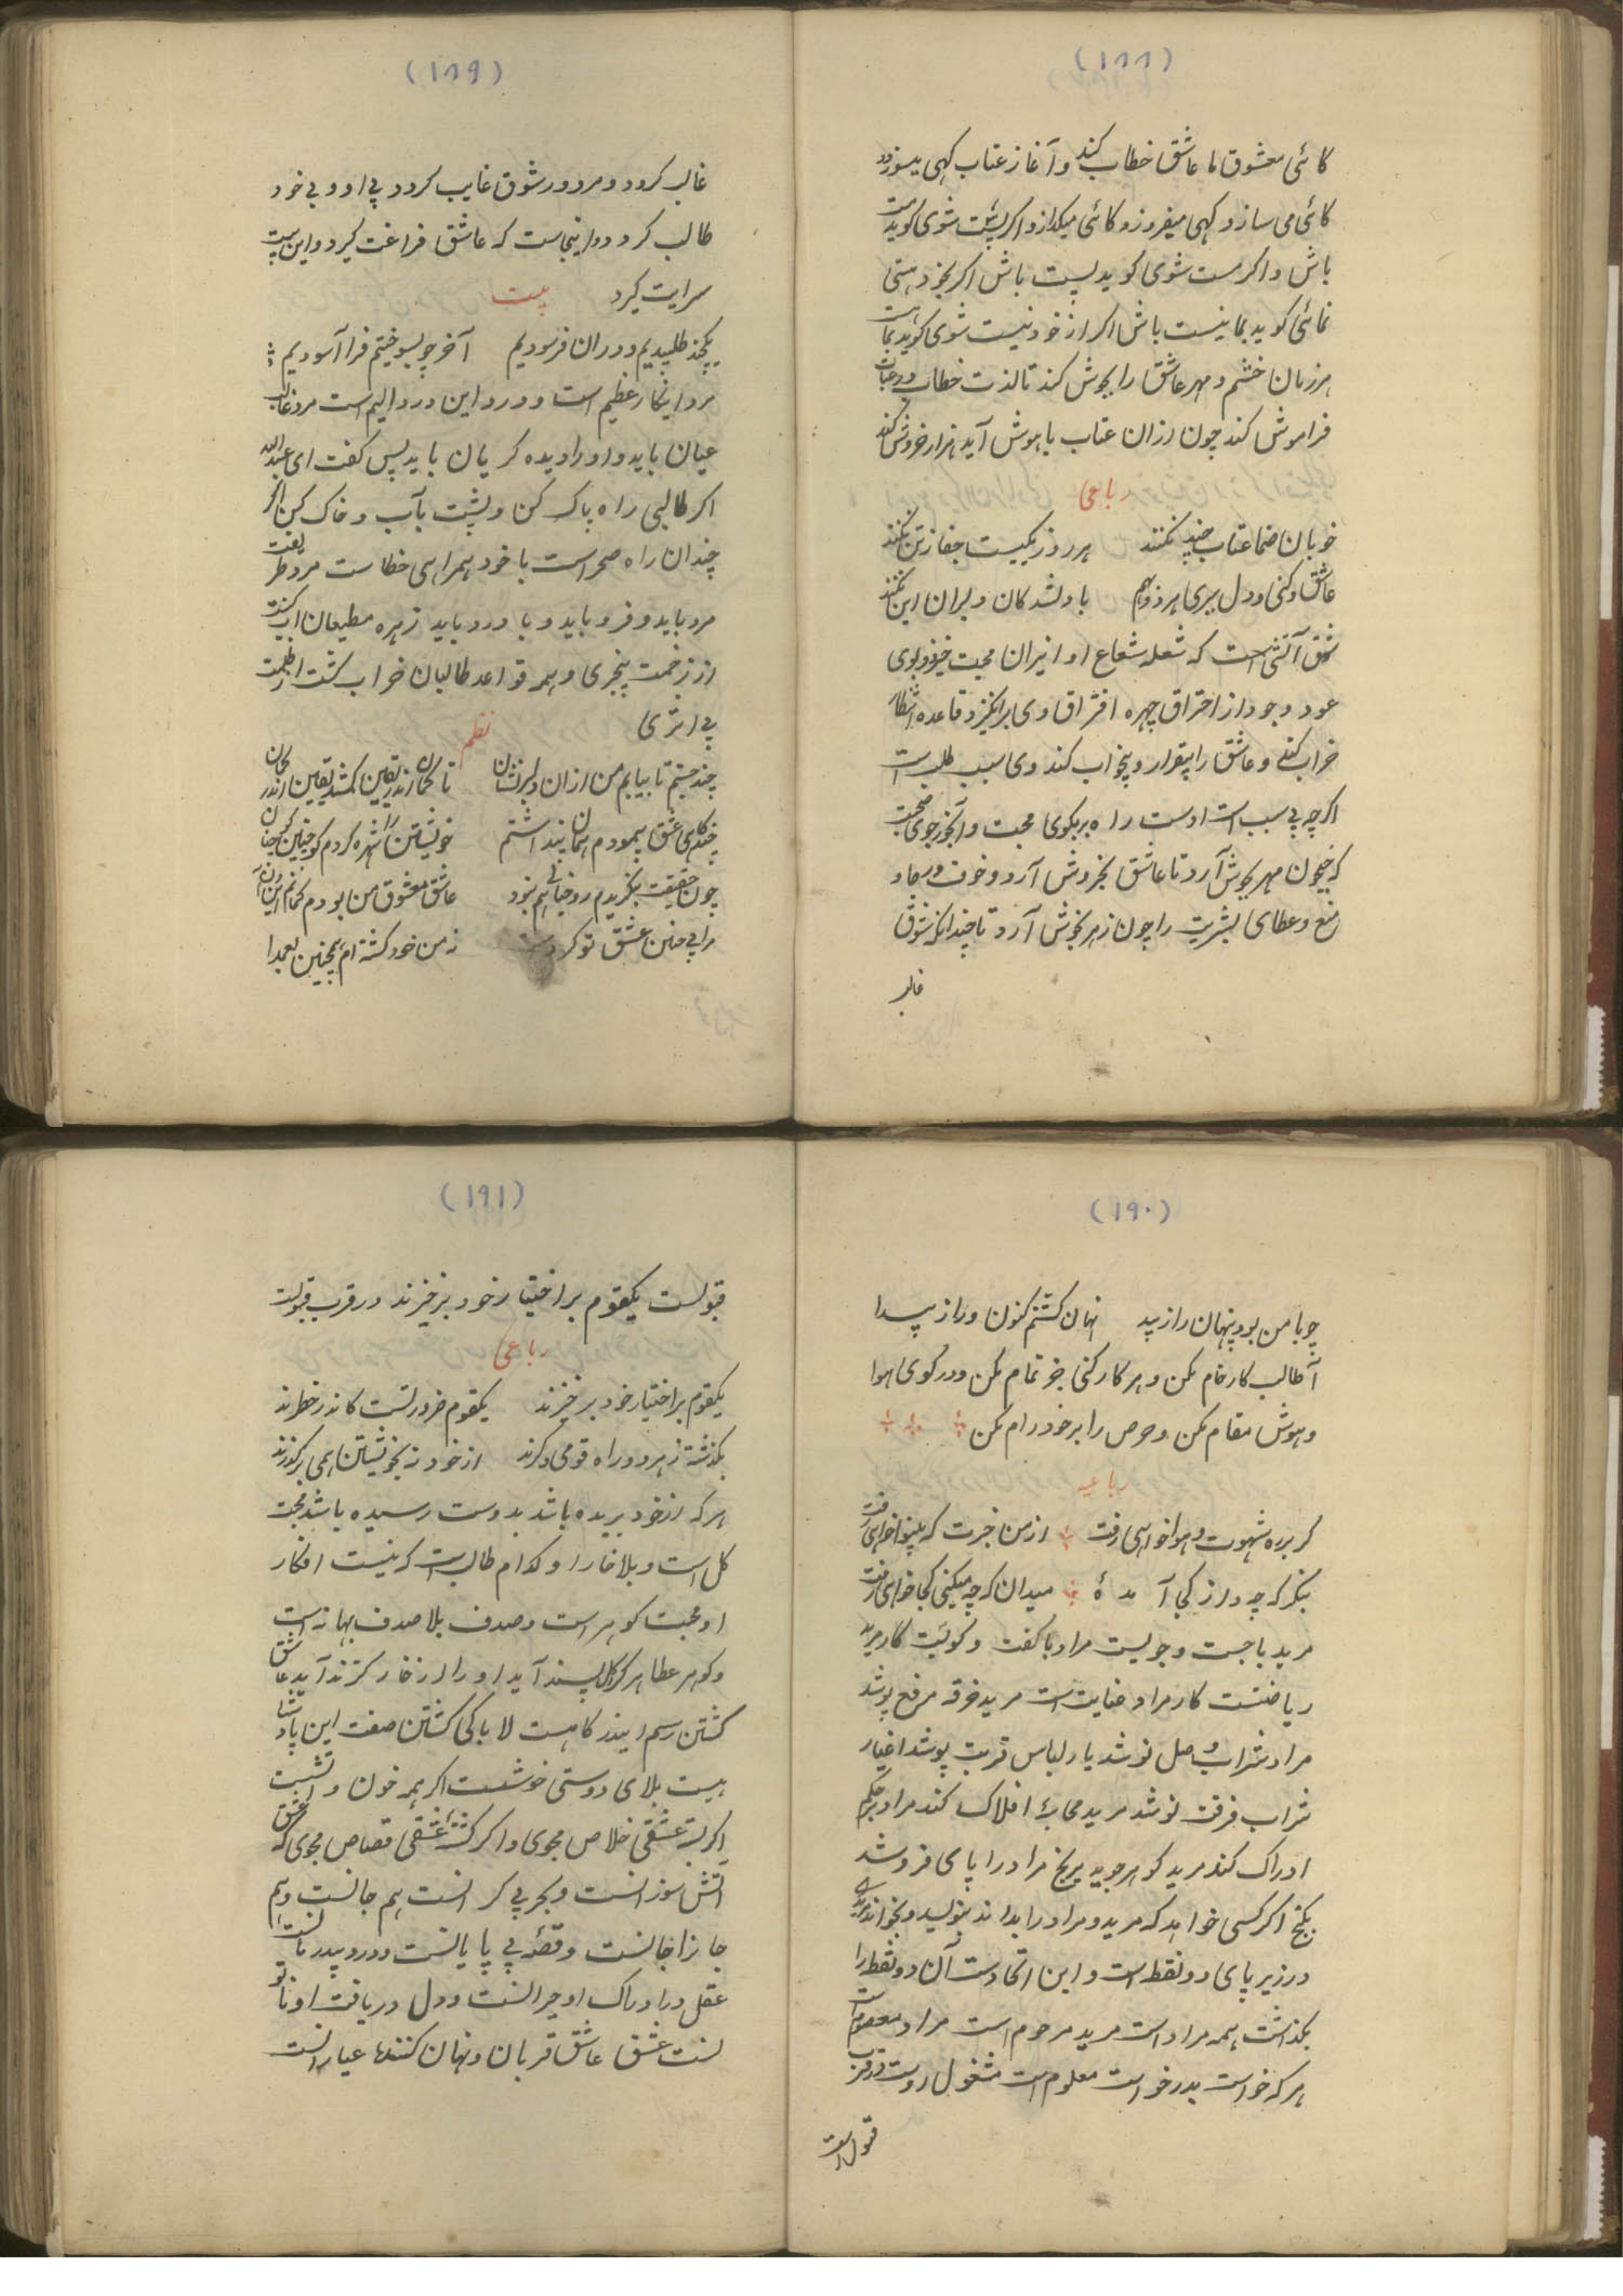 (۱۸۸)
گائی معشوق با عاشق خطاب کند و آغاز عتاب کهی میسوزد
گائی می سازد و کهی میفروزد و گائی میکدازد اکر پست شوی کوید مست
باش و اکر مست شوی کوید پست باش اکر بخود هستی
نمائی کوید بما نیست باش اکر از خود نیست شوی کوید بما هست
هر زمان خشم و مهر عاشق را بجوش کند تا لذت خطاب و رد عتاب
فراموش کند چون از ان عتاب با هوش آید هزار خروش کند
رباعی
خوبان صنما عتاب چندین نکنند هر روز یکیست جفا زین نکنند
عاشق و کنی و دل ببری هر روزم با دلشدکان دلبران این نکنند
عشق آتشی است که شعله شعاع او از نیران محبت خیزد و بوی
عود وجود از احتراق چهره افتراق وی برانکیزد قاعده انتظار
خراب کند و عاشق را بیقرار و بیخواب کند وی سبب طلبست
اکرچه بی سبب است اوست راه بر بکوی محبت و آبخور جوی محبت
که چون مهر بجوش آرد تا عاشق بخروش آرد و خوف و رجا و
منع و عطای بشریت را چون زهر بخوش آرد تا چندانکه شوق
غالب
(۱۸۹)
غالب کردد و مرد در شوق غایب کردد بی او و بی خود
طالب کردد و اینجاست که عاشق فراغت کیرد و این بیت
سرایت کیرد بیت
یکچند طلبیدیم و دران فرسودیم آخر چو بسوختیم فرا آسودیم
مرد اینکار عظیم است و درد این درد الیم است مرد غالب
عیان باید و او را دیده کریان باید پس کفت ای عبدالله
اکر طالبی راه پاک کن و پشت بآب و خاک کن اکر
چندان راه صحراست با خود همراهی خطاست مرد طریقت
مرد باید و فرو باید و با درد باید زهره مطیعان آب کشت
از زخمت بیخبری و همه قواعد طالبان خراب کشت از ظلمت
بی اثری نظم
چند جستم تا بیابم من ازان دلبر نشان تا کمان اندر یقین کم شد یقین اندر کمان
چند کاهی عشق پیمودم همان پنداشتم خویشتن را شهره کردم کو چنین کو چنان
چون حقیقت بنکریدم رو خیالی هم نبود عاشق و معشوق من بودم کمانم این آن
مرا بی من چنین عشق تو کردست ز من خود کشته ام بیچنین بعمدا
(۱۹۰)
چو با من بود پنهان راز پید نهان کشتم کنون و راز پیدا
آ طالب کار خام مکن و هر کار کنی جز تمام مکن و در کوی هوا
و هوش مقام مکن و حرص را بر خود رام مکن
رباعیه
کر بر ره شهوت و هوا خواهی رفت از من خبرت که بینوا خواهی رفت
بنکر که چه و از کجا آمدهٔ میدان که چه میکنی کجا خواهی رفت
مرید با جست و جویست مراد با کفت و کویست کار مرید
ریاضتست کار مراد عنایت است مرید خرقه مرقع پوشد
مراد شراب وصل نوشد یا ر لباس قربت پوشد اغیار
شراب فرقت نوشد مرید محابهٔ افلاک کند مراد بر حکم
ادراک کند مرید کوهر جوید برنج مراد را پای فروشد
بکنج اکر کسی خواهد که مرید و مراد را بداند بنویسد و بخواند مرید
در زیر پای دو نقطه است و این اتحادست آن دو نقطه را
بکذاشت همه مراد است مرید مرحوم است مراد معصوم است
هر که خواست بدرخواست معلوم است مشغول دوست در قرب
قبول است
(۱۹۱)
قبولست یکقوم بر اختیار خود بر خیزند در قرب قبولت
رباعی
یکقوم بر اختیار خود بر خیزند یکقوم فرو رتست کاندر خطرند
بکذشته ز هر دو راه قومی دکرند از خود نه بخویشتن همی برکذرند
هر که از خود بریده باشد بدوست رسیده باشد محبت
کل است و بلا خار او کدام طالب است که نیست افکار
او محبت کوهر است و صدف بلا صدف بهانه است
و کوهر عطا هر کرا کل پسند آید او را از خار کزند آید عاشق
کشتن رسم ایندرکاهست لا باکی کشتن صفت این پادشا
هیست بلای دوستی خوشست اکر همه خون و آتشست
اکر بسته عشقی خلاص مجوی و اکر کشتهٔ عشقی قصاص مجوی که عشق
آتش سوزانست و بحر بی کرانست هم جانست و هم
جانرا جانانست و قصهٔ بی پایانست و درد بیدرمانست
عقل در ادراک او حیرانست و دل در یافت او ناتو
انست عشق عاشق قربان و نهان کنندها عیارانست